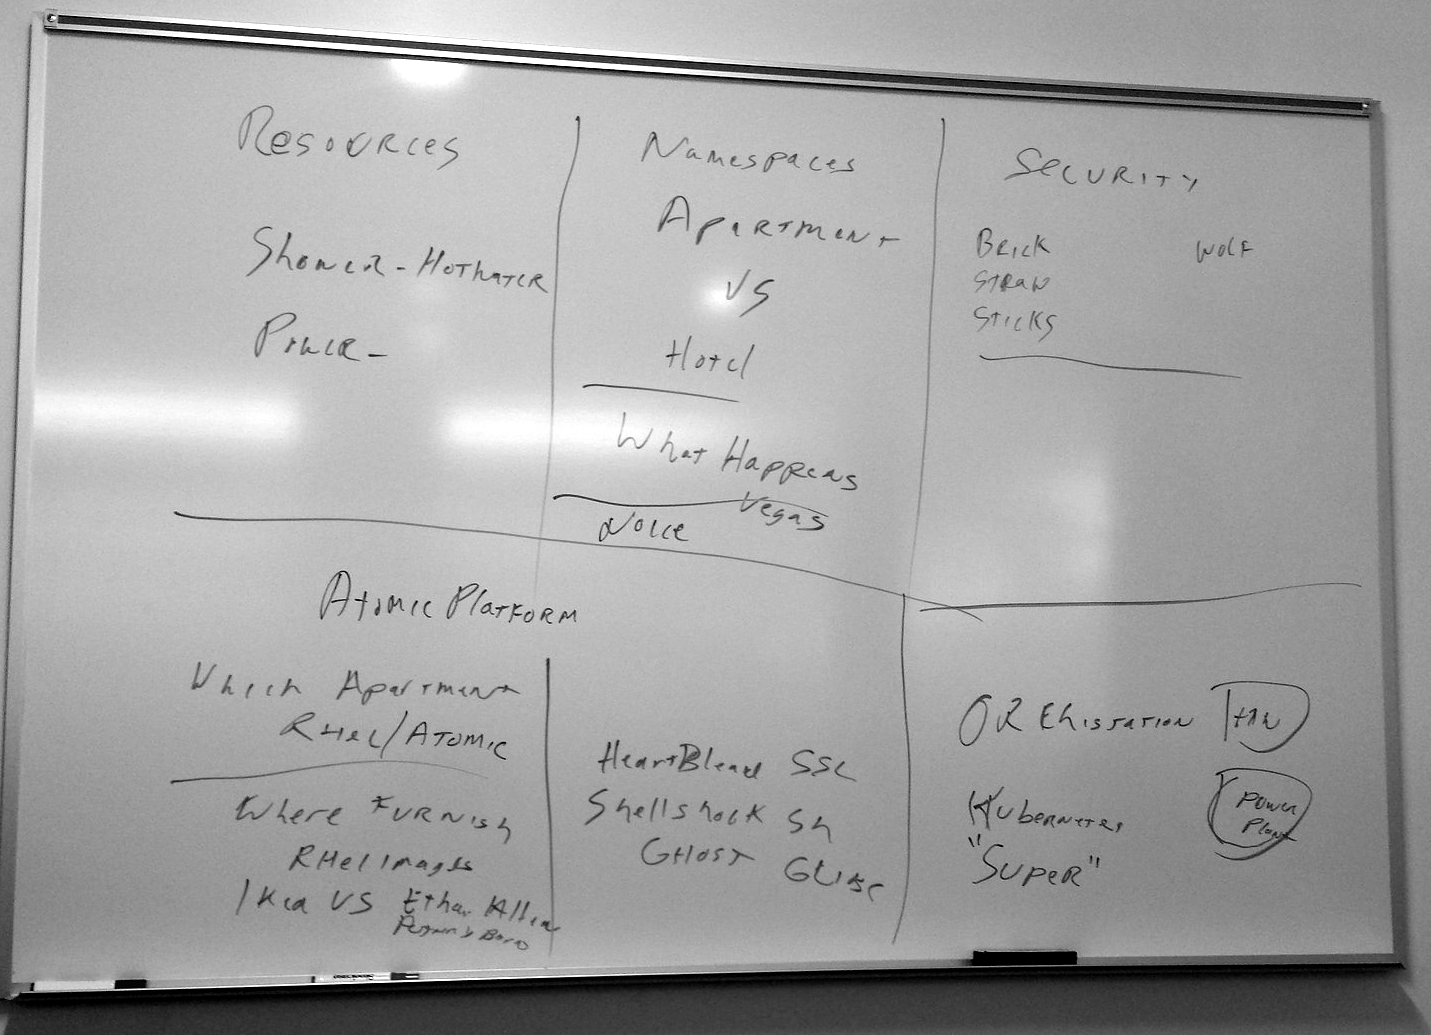 Resources
Shower - Hotwater
Power -
Namespaces
Apartment
VS
Hotel
What Happens
Vegas
Noice
Security
Brick
Straw
Sticks
Wolf
Atomic Platform
Which Apartment
RHel/Atomic
Where Furnish
RHel Images
Ikea VS Ethan Allen
HeartBleed SSL
Shellshock Sh
GHOST Glibc
ORchistration
Kubernetes
"Super"
Power
Plant